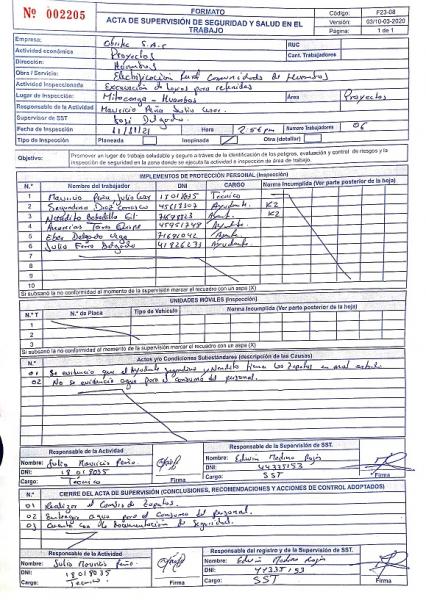 Nº 002205
FORMATO
Código: F23-08
ACTA DE SUPERVISIÓN DE SEGURIDAD Y SALUD EN EL TRABAJO
Versión: 03/10-03-2020
Página: 1 de 1
Empresa: S.A.C RUC
Actividad económica Proyectos Cant. Trabajadores
Dirección: Huambos
Obra / Servicio: Electrificación Rural Comunidades de Huambos
Actividad Inspeccionada Excavación de hoyos para retenidas
Lugar de Inspección: - Huambos Área Proyectos
Responsable de la Actividad Mauricio Peña Julio Cesar
Supervisor de SST José Delgado
Fecha de Inspección Hora 2:56 pm Numero Trabajadores 06
Tipo de Inspección Planeada Inopinada Otra (detallar)
Objetivo: Promover un lugar de trabajo saludable y seguro a través de la identificación de los peligros, evaluación y control de riesgos y la inspección de seguridad en la zona donde se ejecuta la actividad e inspección de área de trabajo.
IMPLEMENTOS DE PROTECCIÓN PERSONAL (Inspección)
N.° Nombre del trabajador DNI CARGO Norma Incumplida (Ver parte posterior de la hoja)
1 Mauricio Peña Julio Cesar 18018035 Técnico
2 Segundino Diaz 45618307 Ayudante. K2
3 Bobadilla Gil K2
4
5 Eber Delgado Vega 71681042
6 Julio Delgado 41826273 Ayudante
7
8
9
10
Si subsanó la no conformidad al momento de la supervisión marcar el recuadro con un aspa (X)
UNIDADES MÓVILES (Inspección)
N.° T N.° de Placa Tipo de Vehículo Norma Incumplida (Ver parte posterior de la hoja)
1
2
3
Si subsanó la no conformidad al momento de la supervisión marcar el recuadro con un aspa (X)
N.° Actos y/o Condiciones Subestándares (descripción de las Causas)
01 Se evidencio que el Ayudante segundino y tienen los Zapatos en mal estado.
02 No se evidencia agua para el consumo del personal.
Responsable de la Actividad
Nombre: Julio Mauricio Peña
DNI: 18018035
Cargo: Técnico Firma
Responsable de la Supervisión de SST.
Nombre: Edwin Medina Rojas
DNI: 44335153
Cargo: SST Firma
N.° CIERRE DEL ACTA DE SUPERVISIÓN (CONCLUSIONES, RECOMENDACIONES Y ACCIONES DE CONTROL ADOPTADOS)
01 Realizar el Cambio de Zapatos.
02 agua para el Consumo del personal.
03 Cuenta con la Documentación de Seguridad.
Responsable de la Actividad
Nombre: Julio Mauricio Peña
DNI: 18018035
Cargo: Técnico Firma
Responsable del registro y de la Supervisión de SST.
Nombre: Edwin Medina Rojas
DNI: 44335153
Cargo: SST Firma